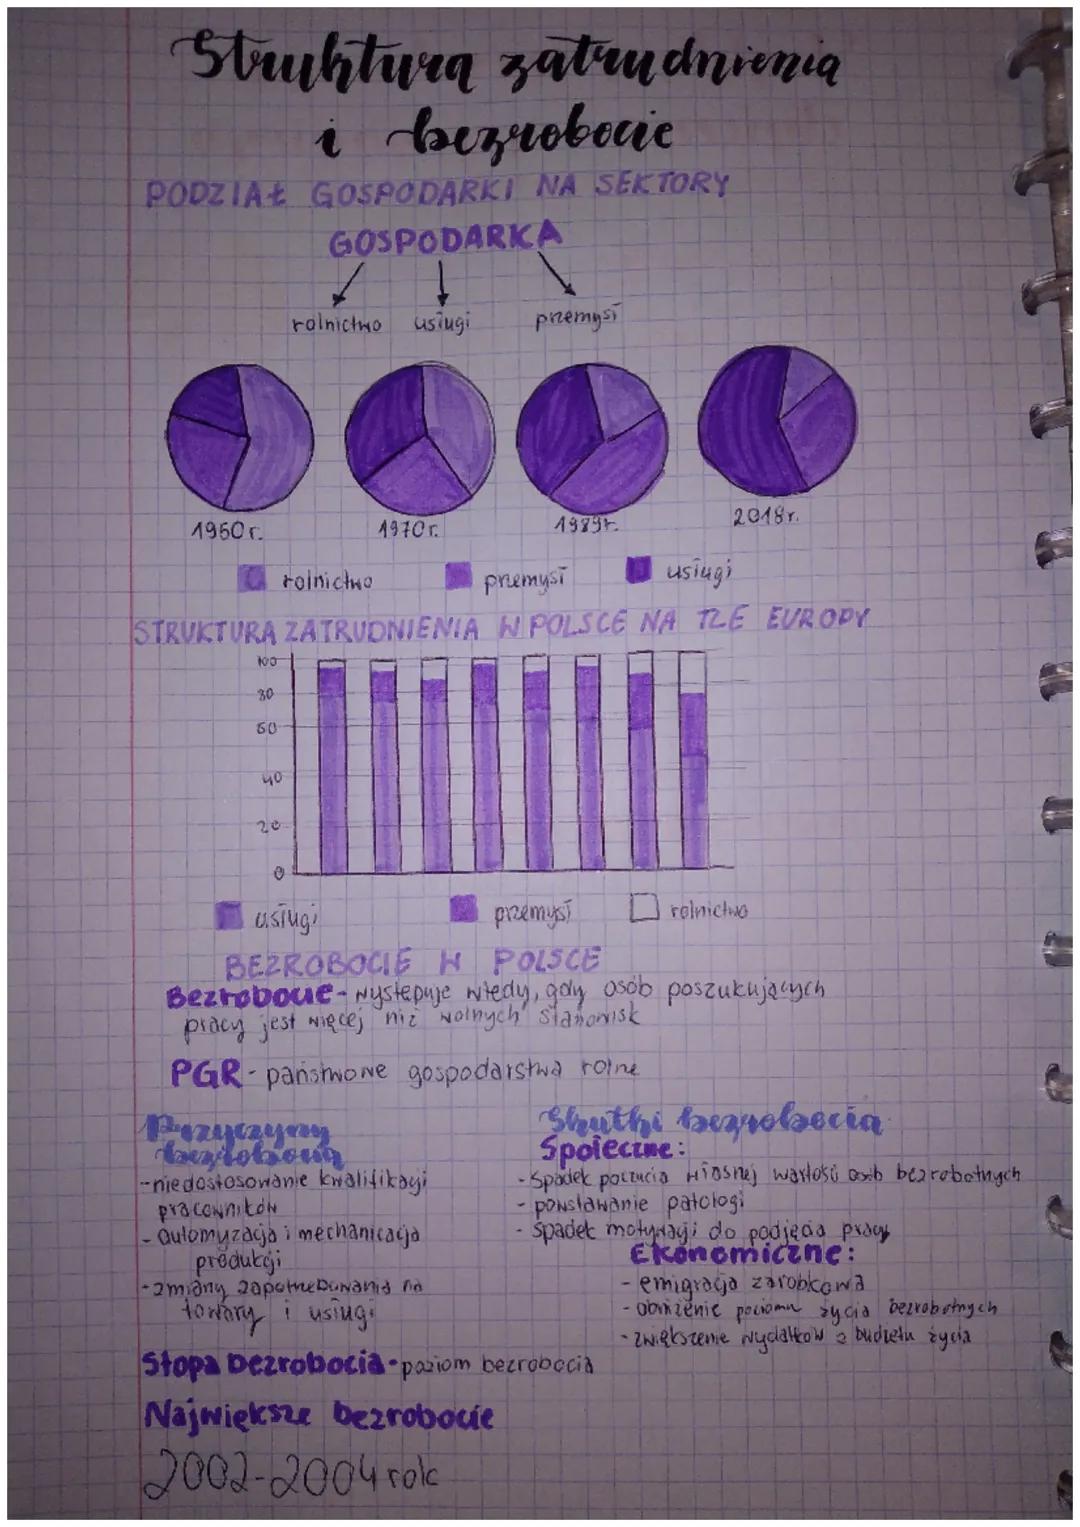 Struktura zatrudnienia
i bezrobocie
PODZIAŁ GOSPODARKI NA SEKTORY
GOSPODARKA
rolnictwo usługi przemysł
1950r. 1970r. 1989r. 2018r.
rolnictwo przemysł usługi
STRUKTURA ZATRUDNIENIA W POLSCE NA TLE EUROPY
100
80
60
40
20
0
usługi przemysł rolnictwo
BEZROBOCIE W POLSCE
Bezrobocie - występuje wtedy, gdy osób poszukujących
pracy jest więcej niż wolnych stanowisk
PGR - państwowe gospodarstwa rolne
Przyczyny
bezrobocia
- niedostosowanie kwalifikacji
pracowników
- automyzacja i mechanicacja
produkcji
- zmiany zapotrzebowania na
towary i usługi
Skutki bezrobocia
Społeczne:
- Spadek poczucia własnej wartości osób bezrobotnych
- powstawanie patologi
- Spadek motywacji do podjęcia pracy
Ekonomiczne:
- emigracja zarobkowa
- obniżenie poziomu życia bezrobotnych
- zwiększenie wydatków z budżetu życia
Stopa bezrobocia - poziom bezrobocia
Największe bezrobocie
2002-2004 rok